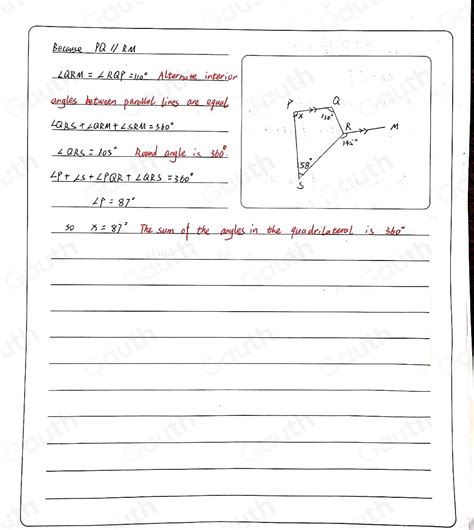 Because PQ // RM
∠QRM = ∠RQP = 110° Alternate interior
angles between parallel lines are equal
∠QRS + ∠QRM + ∠SRM = 360°
∠QRS = 105° Round angle is 360°.
∠P + ∠S + ∠PQR + ∠QRS = 360°
∠P = 87°
so x = 87° The sum of the angles in the quadrilateral is 360°
P
Q
x
110°
R
M
145°
58°
S
Gauth